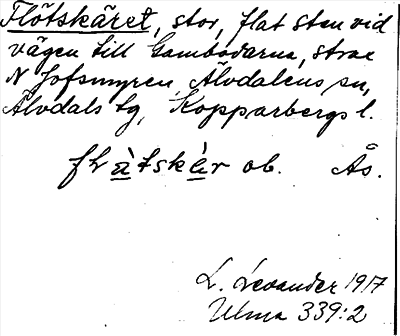 Flötskäret, stor, flat sten vid
vägen till Gambodarna, strax
N Jofsmyren, Älvdalens sn,
Älvdals tg, Kopparbergs l.
ob. Ås.
L. Levander 1917
Ulma 339:2